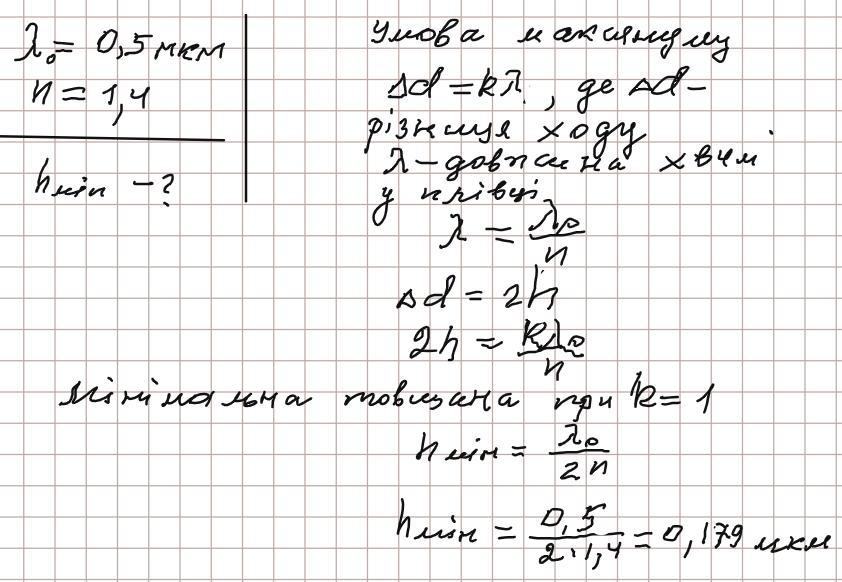 λ₀ = 0,5 мкм
n = 1,4
hмін - ?
Умова максимуму
Δd = kλ, де Δd -
різниця ходу
λ - довжина хвилі
у плівці.
λ = λ₀/n
Δd = 2h
2h = kλ₀/n
Мінімальна товщина при k = 1
hмін = λ₀/2n
hмін = 0,5/2·1,4 = 0,179 мкм